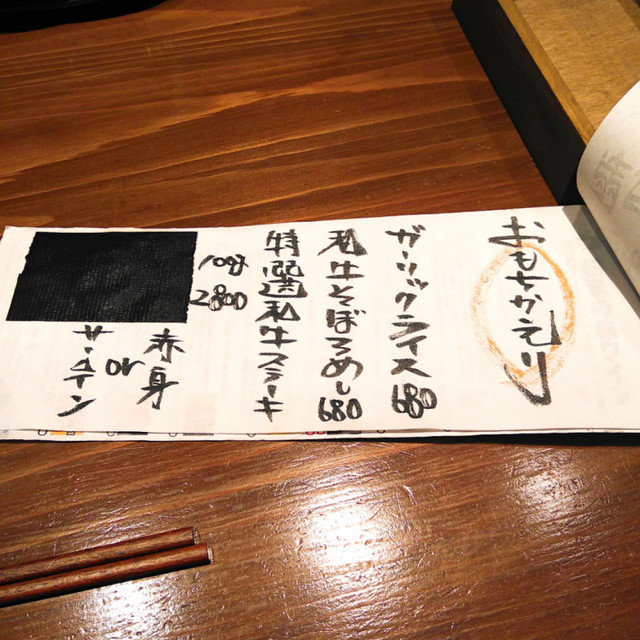 おもちかえり
ガーリックライス 680
和牛そぼろめし 680
特選和牛ステーキ
100g
2800
赤身
or
サーロイン